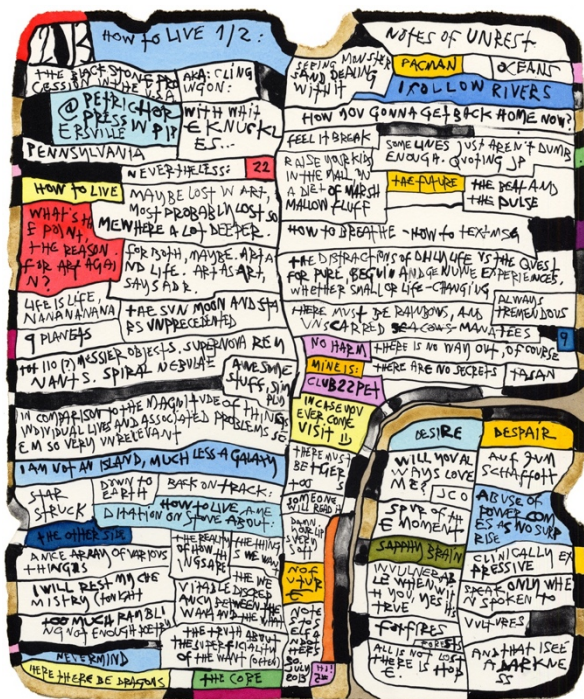 HOW TO LIVE 1/2:
THE BLACK STONE PRO
CESSION IN THE USA
AKA: CLING
WGON:
@ PETRICHOR
PRESS IN PIP
ERSVILLE
WITH WHIT
E KNUCKL
ES...
PENNSYLVANIA
NEVERTHELESS:
22
HOW TO LIVE
MAYBE LOST IN ART,
MOST PROBABLY LOST SO
MEWHERE A LOT DEEPER.
WHAT'S TH
E POINT,
THE REASON
FOR ART AGAI
N?
FOR BOTH, MAYBE. ART A
ND LIFE. ART AS ART,
SAYS ADR.
LIFE IS LIFE,
NANANANANA
THE SUN MOON AND STA
RS UNPRECEDENTED
9 PLANETS
110 (?) MESSIER OBJECTS. SUPERNOVA REM
NANTS. SPIRAL NEBULAE
AWESOME
STUFF, SIM
PLY
IN COMPARISON TO THE MAGNITUDE OF THINGS
INDIVIDUAL LIVES AND ASSOCIATED PROBLEMS SE
EM SO VERY UNRELEVANT
I AM NOT AN ISLAND, MUCH LESS A GALAXY
STAR
STRUCK
DOWN TO
EARTH
BACK ON TRACK:
HOW TO LIVE, A ME
DITATION ON STONE ABOUT:
THE OTHER SIDE
A NICE ARRAY OF VARIOUS
THINGS
I WILL REST MY CHE
MISTRY TONIGHT
TOO MUCH RAMBLI
NG NOT ENOUGH POETRY
NEVERMIND
HERE THERE BE DRAGONS
THE REALITY
OF HOW TH
INGS ARE
THE THING
S WE WAN
THE INE
VITABLE DISCREP
ANCY BETWEEN THE
WAY AND THE WHAT
THE TRUTH ABOUT
THE SUPERFICIALITY
OF THE WANT (OFTEN)
THE CORE
NOTES OF UNREST.
SEEING MONSTER
S AND DENING
WITH IT
PACMAN
OCEANS
I FOLLOW RIVERS
HOW YOU GONNA GET BACK HOME NOW?
FEEL IT BREAK
SOME LINES JUST AREN'T DUMB
ENOUGH. QUOTING JP
RAISE YOUR KIDS
IN THE MALL ON
A DIET OF MARSH
MALLOW FLUFF
THE FUTURE
THE BEAT AND
THE PULSE
HOW TO BREATHE - HOW TO TEXT MSG
THE DISTRACTIONS OF DAILY LIFE VS THE QUEST
FOR PURE, BEGUIN AND GENUINE EXPERIENCES,
WHETHER SMALL OR LIFE-CHANGING
THERE MUST BE RAINBOWS, AND
UNSCARRED SEA COWS - MANATEES
ALWAYS
TREMENDOUS
9
NO HARM
THERE IS NO WAY OUT, OF COURSE
MINE IS:
CLUB 22 PET
THERE ARE NO SECRETS
TASAN
IN CASE YOU
EVER COME
VISIT !!!
THERE MUST
BE TIGER
TOO
SOMEONE
WILL READ IT
DAMN,
VERY
SOFT
NO F
UTUR
E
NOTE
S TO S
ELF A
ND
OTHE
RS
30
JULY
2015
DESIRE
DESPAIR
WILL YOU AL
WAYS LOVE
ME?
JCO
AUF ZUM
SCHAFFOTT
SPUR OF TH
E MOMENT
ABUSE OF
POWER COM
ES AS NO SURP
RISE
SAPPHY BRAIN
CLINICALLY EX
PRESSIVE
INVULNERAB
LE WHEN WIT
H YOU, YES IT'S
TRUE
SPEAK ONLY WHE
N SPOKEN TO
FOXFIRES
VULTURES
FORESTS
ALL IS NOT LOST
THERE IS HOP
E.
AND THAT I SEE
A DARKNE
SS